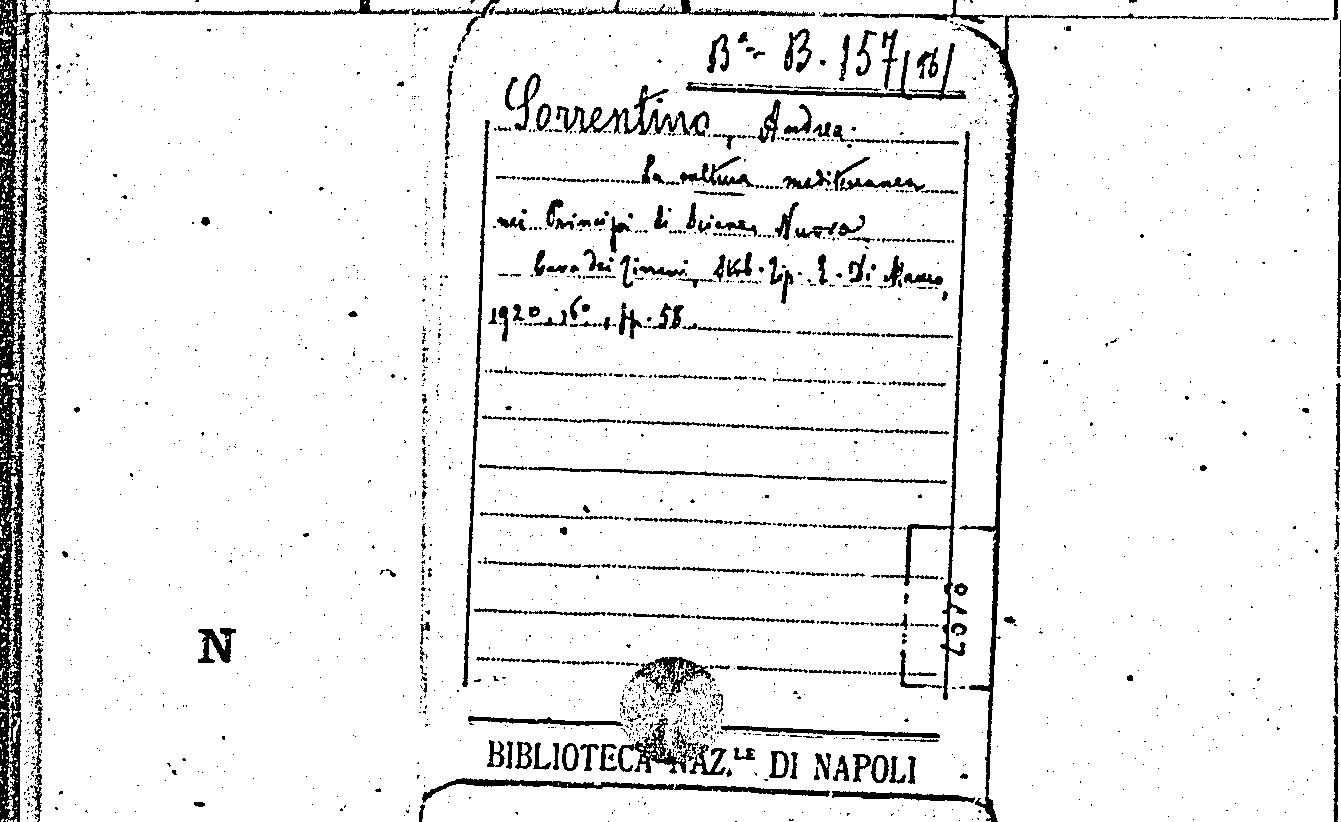 Bª - B. 157/16/
Sorrentino, Andrea.
La cultura mediterranea
nei Principi di Scienza Nuova
Cava dei Tirreni, Stab. Tip. E. Di Mauro,
1920, 16°, pp. 58.
N
BIBLIOTECA NAZ.LE DI NAPOLI